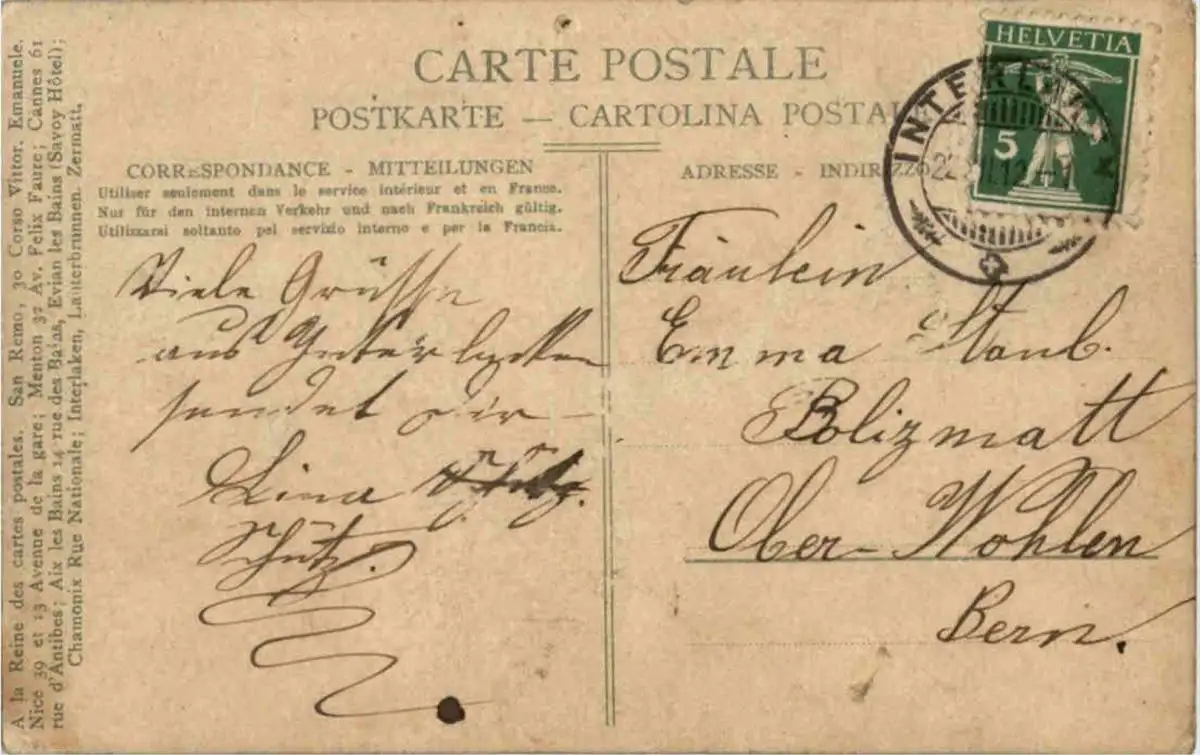 CARTE POSTALE
POSTKARTE — CARTOLINA POSTALE
CORRESPONDANCE - MITTEILUNGEN
Utiliser seulement dans le service intérieur et en France.
Nur für den internen Verkehr und nach Frankreich gültig.
Utilizzarsi soltanto pel servizio interno e per la Francia.
Viele Grüsse
aus Interlacken
sendet dir
Lina
Schütz.
ADRESSE - INDIRIZZO
HELVETIA
5
INTERLAKEN
Fräulein
Emma Staub.
Bolizmatt
Ober-Wohlen
Bern.
A la Reine des cartes postales. San Remo, 30 Corso Vittor. Emanuele.
Nice 39 et 13 Avenue de la gare; Menton 37 Av. Felix Faure; Cannes 61
rue d'Antibes; Aix les Bains 14 rue des Bains, Evian les Bains (Savoy Hôtel);
Chamonix Rue Nationale; Interlaken, Lauterbrunnen. Zermatt.